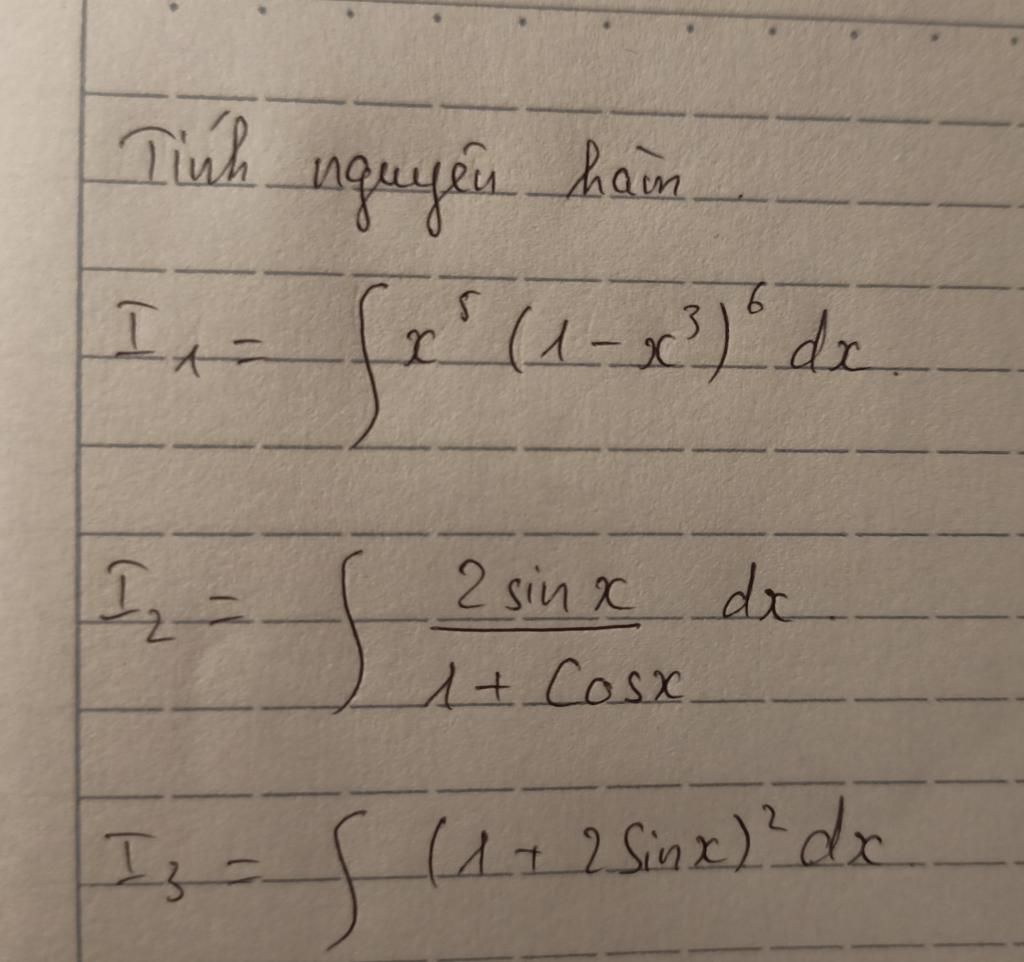 Tính nguyên hàm.
I₁ = ∫ x⁵ (1 - x³)⁶ dx.
I₂ = ∫ 2 sin x / 1 + Cosx dx.
I₃ = ∫ (1 + 2 Sinx)² dx